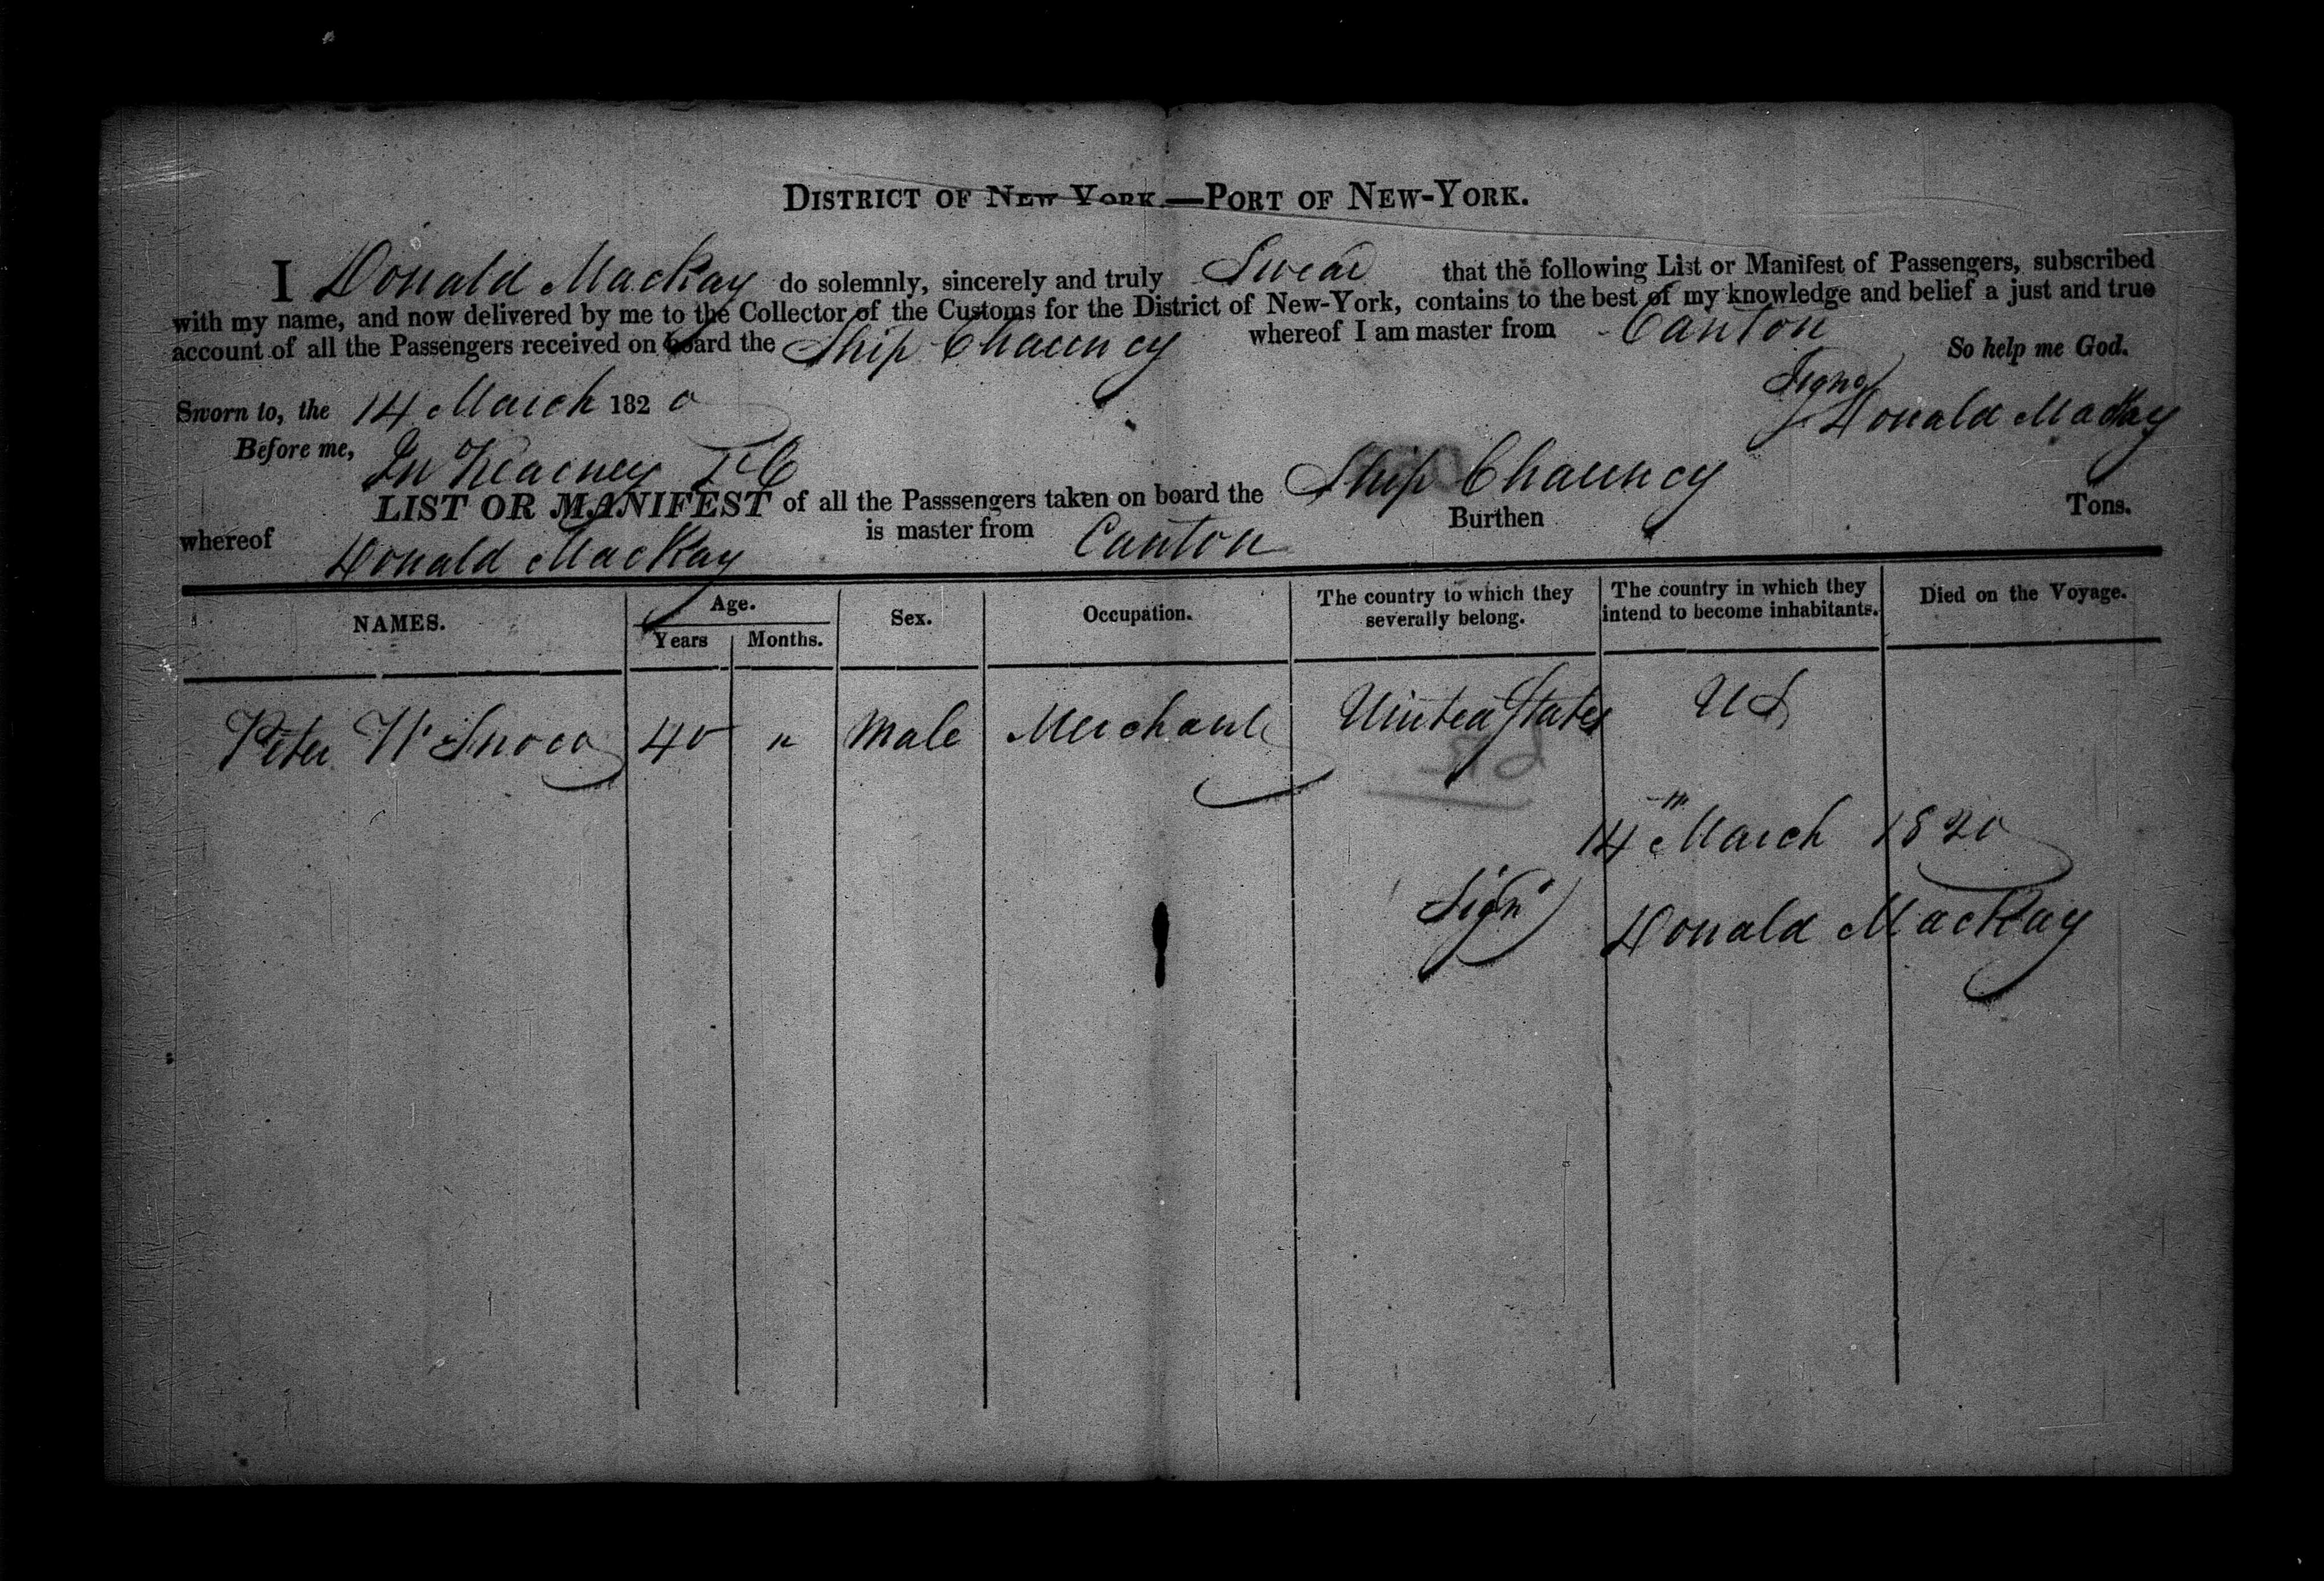 DISTRICT OF NEW YORK.—PORT OF NEW-YORK.
I Donald MacKay do solemnly, sincerely and truly Swear that the following List or Manifest of Passengers, subscribed
with my name, and now delivered by me to the Collector of the Customs for the District of New-York, contains to the best of my knowledge and belief a just and true
account of all the Passengers received on board the Ship Chauncy whereof I am master from Canton
So help me God.
Sworn to, the 14 March 1820
Signd Donald MacKay
Before me, Kearney
LIST OR MANIFEST of all the Passsengers taken on board the Ship Chauncy Burthen Tons.
whereof Donald MacKay is master from Canton
NAMES. Age. Years Months. Sex. Occupation. The country to which they severally belong. The country in which they intend to become inhabitants. Died on the Voyage.
Peter W Snow 40 " Male Merchant United States US
14th March 1820
Signd Donald MacKay